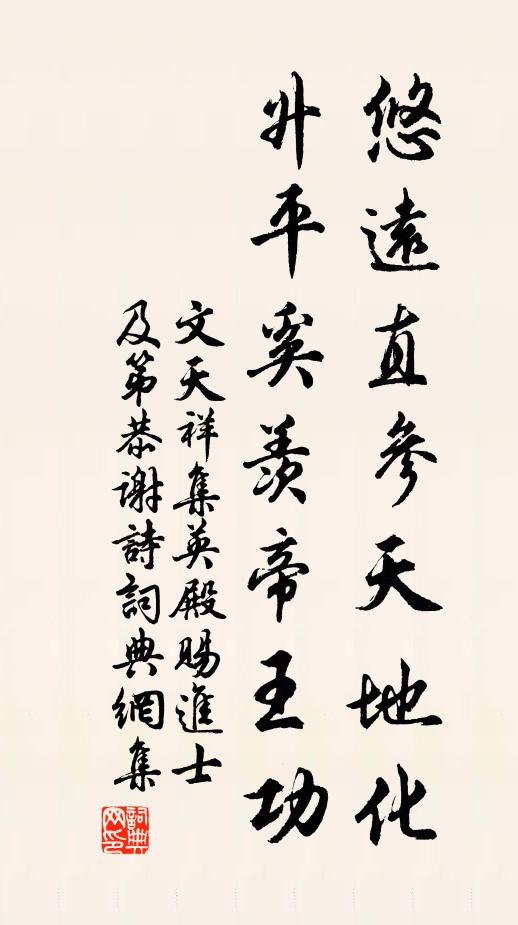 悠遠直參天地化
升平奚羨帝王功
文天祥集英殿賜進士
及第恭謝詩詞典網集
詞典網印